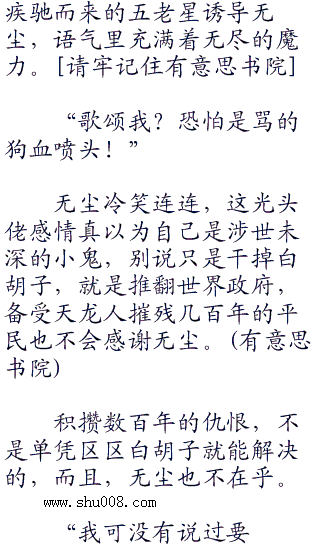 疾驰而来的五老星诱导无
尘，语气里充满着无尽的魔
力。[请牢记住有意思书院]
“歌颂我？恐怕是骂的
狗血喷头！”
无尘冷笑连连，这光头
佬感情真以为自己是涉世未
深的小鬼，别说只是干掉白
胡子，就是推翻世界政府，
备受天龙人摧残几百年的平
民也不会感谢无尘。(有意思
书院)
积攒数百年的仇恨，不
是单凭区区白胡子就能解决
的，而且，无尘也不在乎。
www.shu008.com
“我可没有说过要